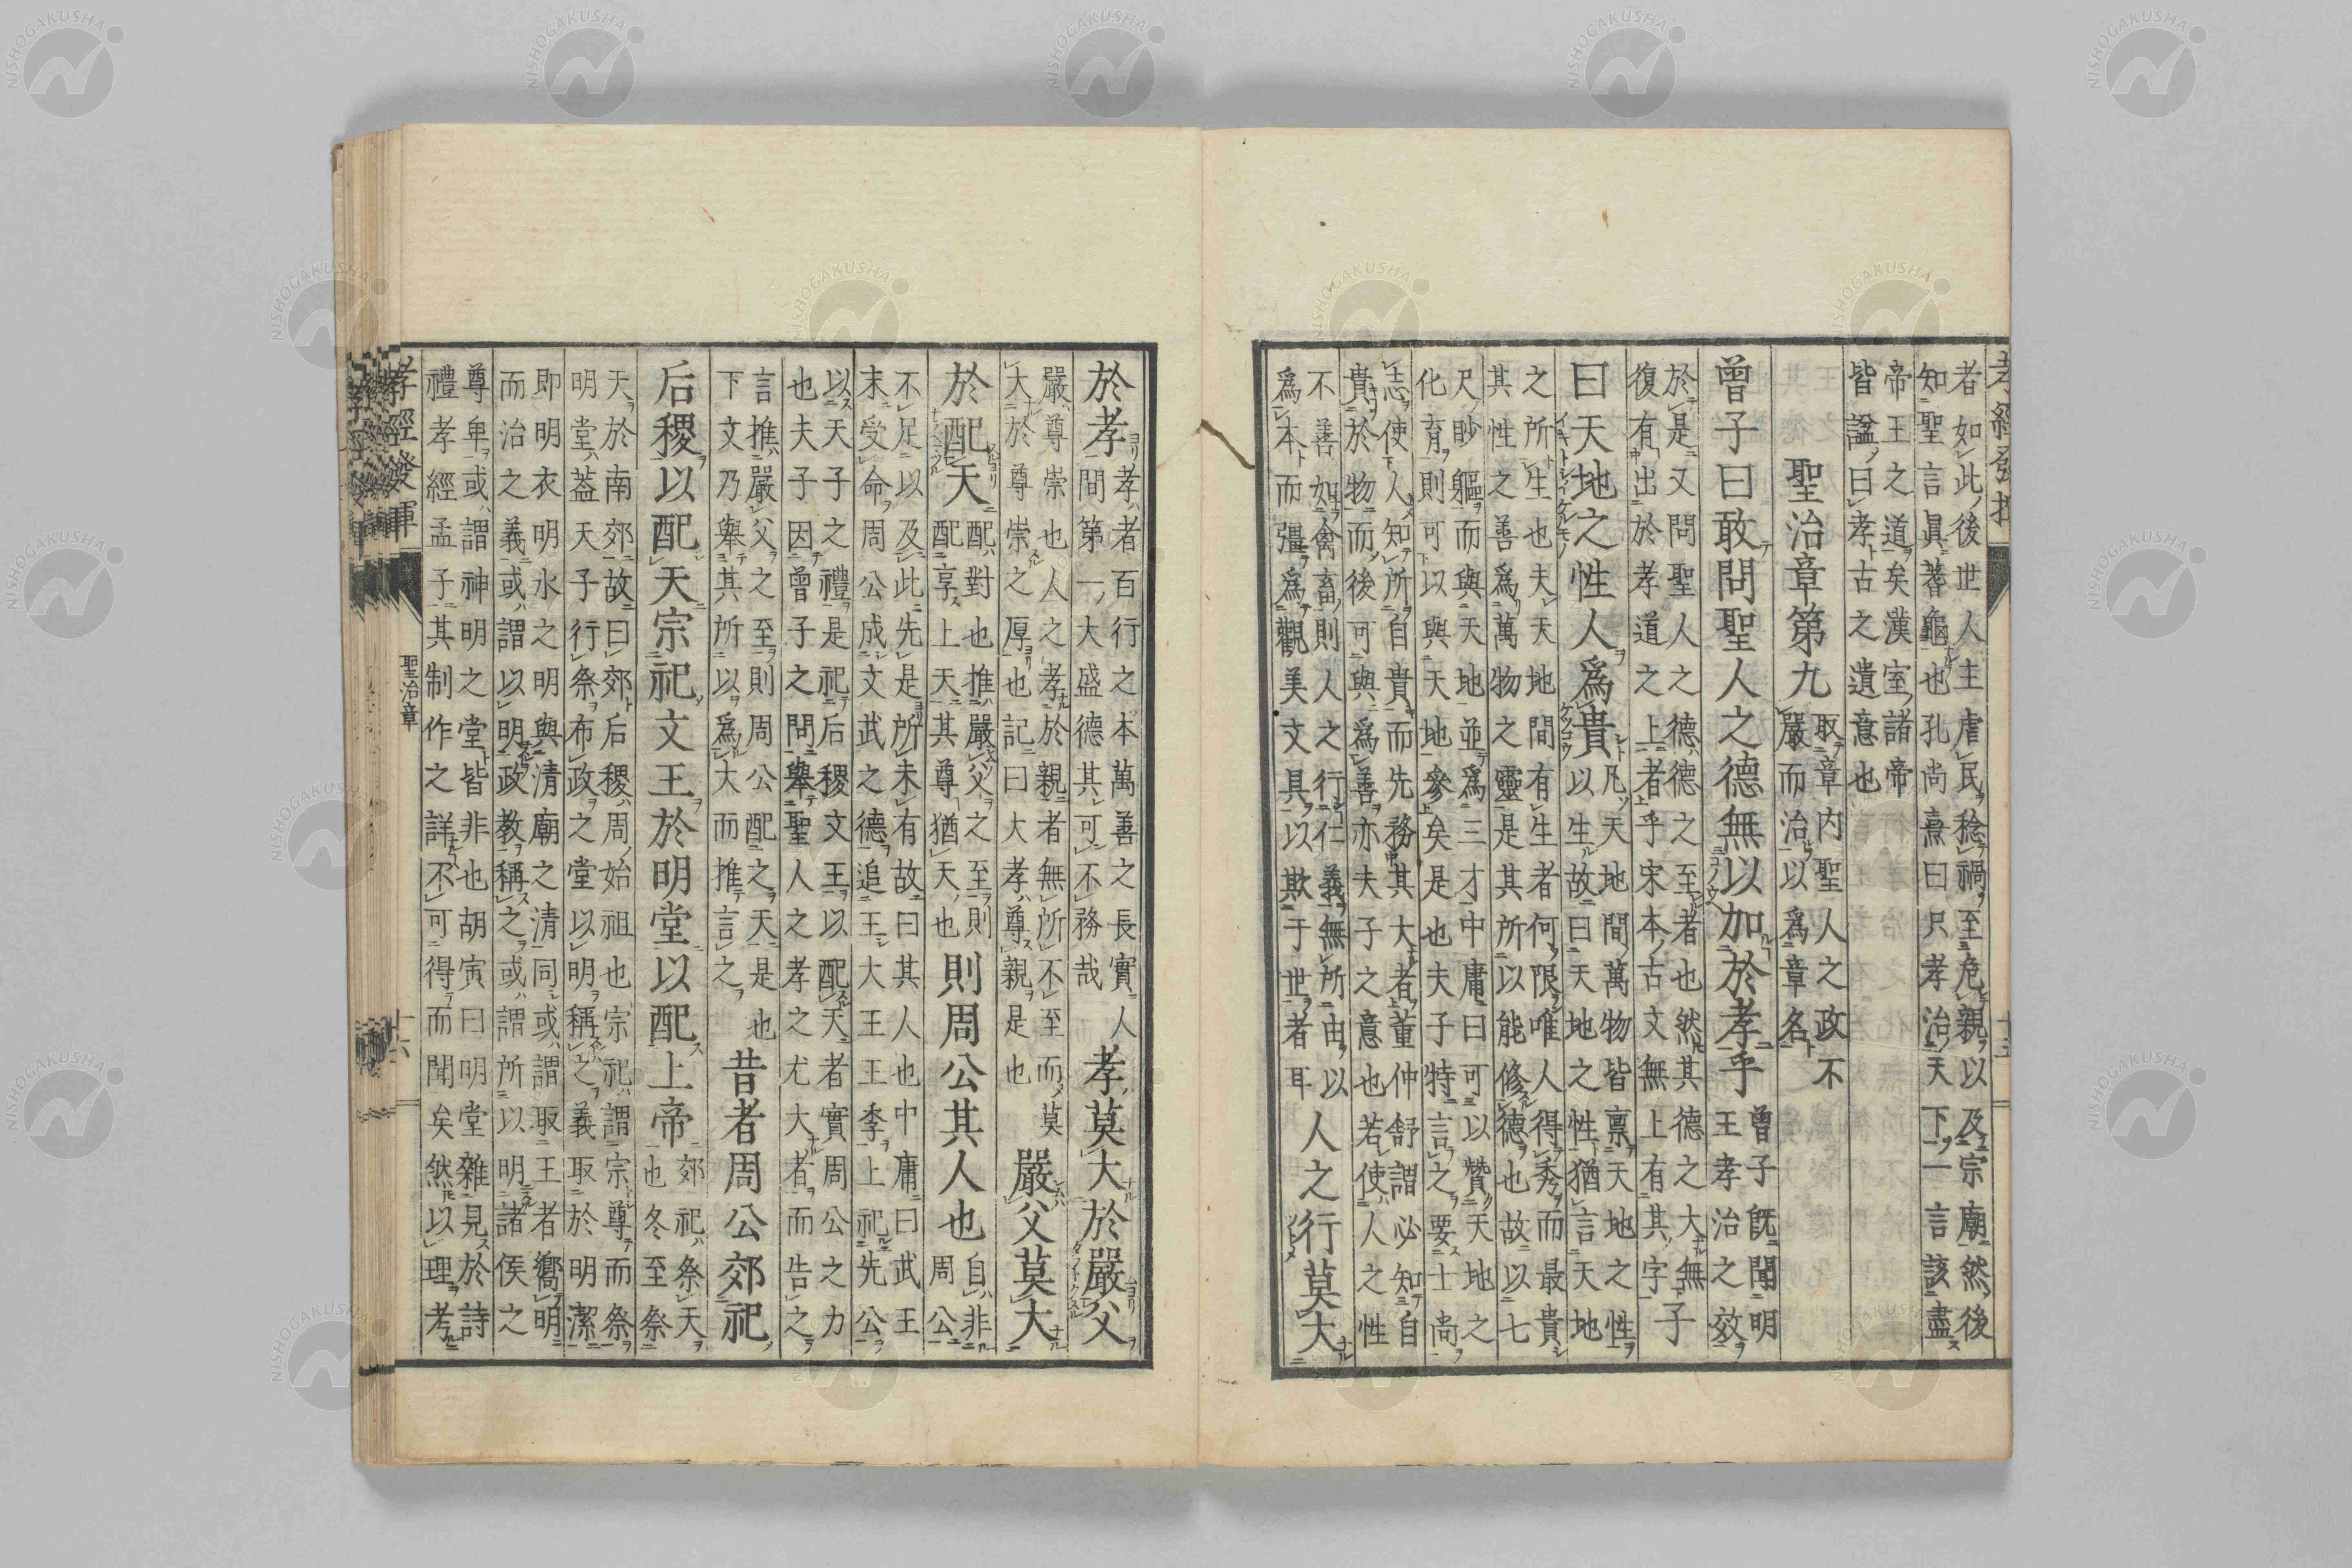 者如此後世人主虐民稔禍至危親以及宗廟然後
知聖言眞蓍龜也孔尚熹曰只孝治天下一言該盡
帝王之道矣漢室諸帝
皆諡曰孝古之遺意也
聖治章第九
取章内聖人之政不
嚴而治以爲章名
曾子曰敢問聖人之德無以加於孝乎
曾子旣聞明
王孝治之效
於是又問聖人之德德之至者也然其德之大無
復有出於孝道之上者乎宋本古文無上有其字
子
曰天地之性人爲貴
凡天地間萬物皆稟天地之性
以生故曰天地之性猶言天地
之所生也夫天地間有生者何限唯人得秀而最貴
其性之善爲萬物之靈是其所以能修德也故以七
尺眇軀而與天地並爲三才中庸曰可以贊天地之
化育則可以與天地參矣是也夫子特言之要士尚
志使人知所自貴而先務其大者董仲舒謂必知自
貴於物而後可與爲善亦夫子之意也若使人之性
不善如禽畜則人之行仁義無所由以
爲本而彊爲觀美文具以欺于世者耳
人之行莫大
於孝
孝者百行之本萬善之長實人
間第一大盛德其可不務哉
孝莫大於嚴父
嚴尊崇也人之孝於親者無所不至而莫
大於尊崇之厚也記曰大孝尊親是也
嚴父莫大
於配天
配對也推嚴父之至則
配享上天其尊猶天也
則周公其人也
自非
周公
不足以及此先是所未有故曰其人也中庸曰武王
末受命周公成文武之德追王大王王季上祀先公
以天子之禮是祀后稷文王以配天者實周公之力
也夫子因曾子之問舉聖人之孝之尤大者而告之
言推嚴父之至則周公配之天是也
下文乃舉其所以爲大而推言之
昔者周公郊祀
后稷以配天宗祀文王於明堂以配上帝
郊祀祭天
也冬至祭
天於南郊故曰郊后稷周始祖也宗祀謂宗尊而祭
明堂蓋天子行祭布政之堂以明稱之義取於明潔
即明衣明水之明與清廟之清同或謂取王者嚮明
而治之義或謂以明政教稱之或謂所以明諸侯之
尊卑或謂神明之堂皆非也胡寅曰明堂雜見於詩
禮孝經孟子其制作之詳不可得而聞矣然以理考
孝經發揮
聖治章
十六
NISHOGAKUSHA